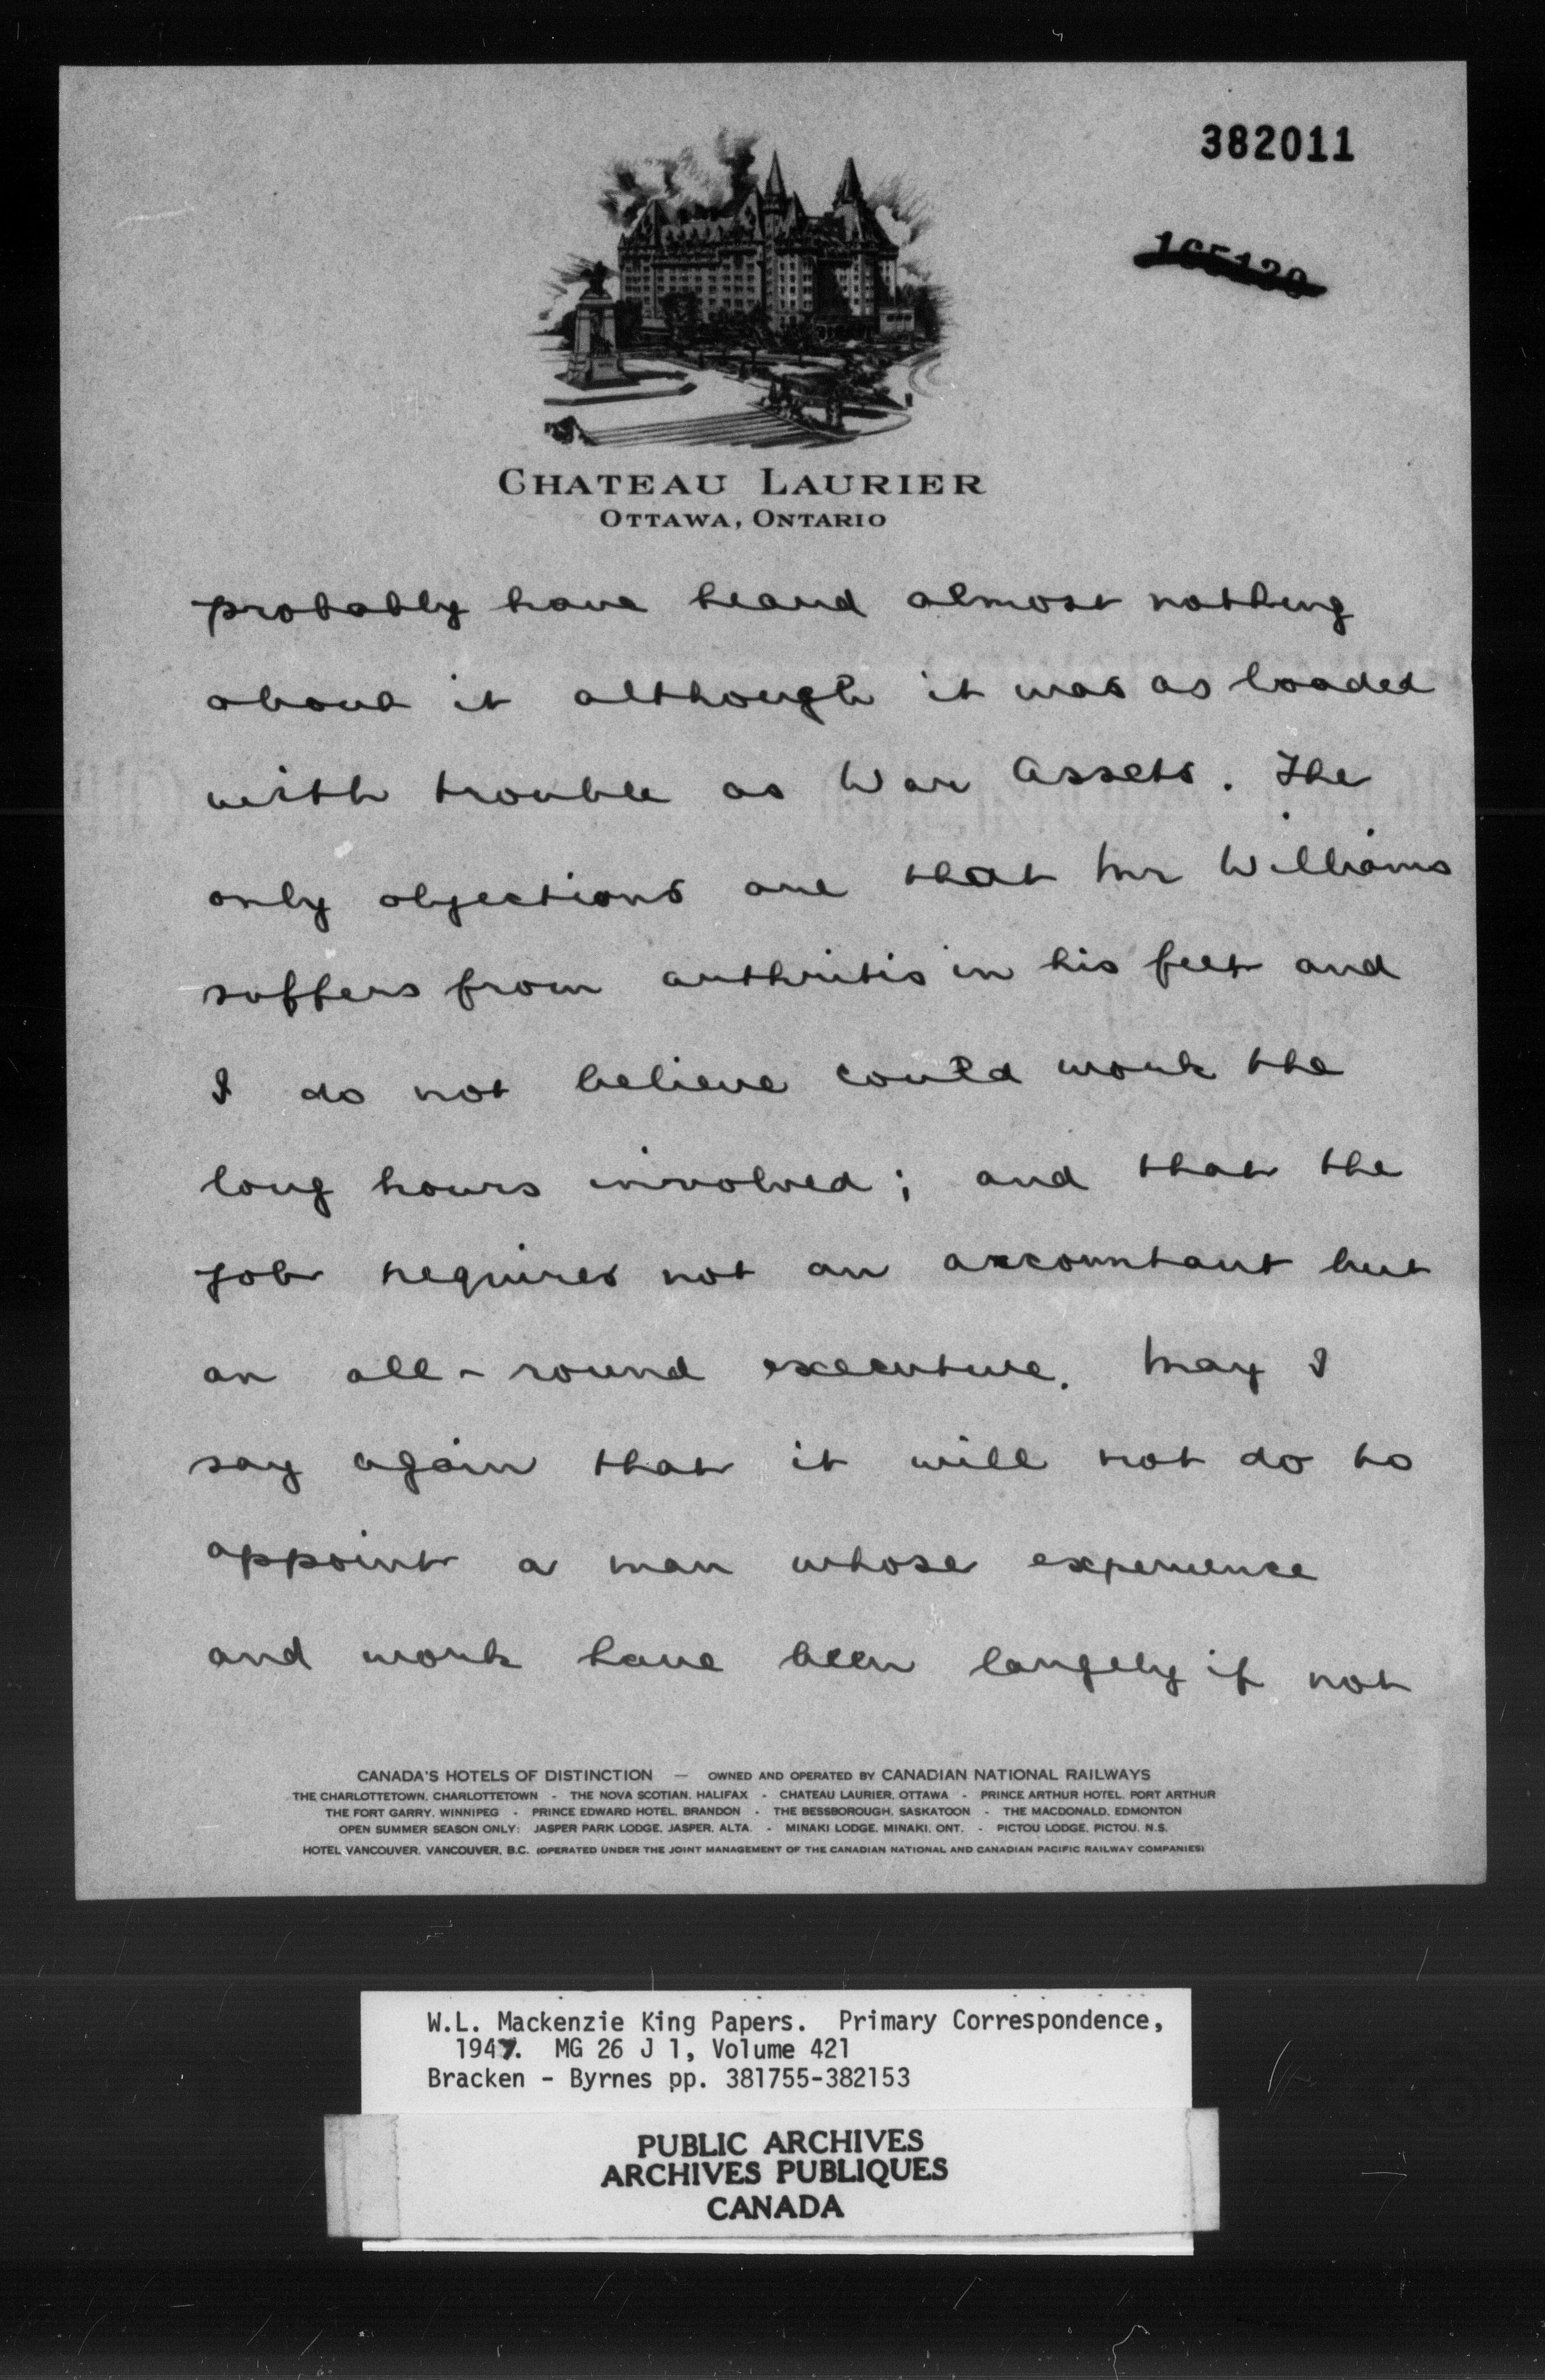 382011
165139
CHATEAU LAURIER
OTTAWA, ONTARIO
probably have heard almost nothing
about it although it was as loaded
with trouble as War Assets. The
only objections are that Mr Williams
suffers from arthritis in his feet and
I do not believe could work the
long hours involved; and that the
job requires not an accountant but
an all-round executive. May I
say again that it will not do to
appoint a man whose experience
and work have been largely if not
CANADA'S HOTELS OF DISTINCTION — OWNED AND OPERATED BY CANADIAN NATIONAL RAILWAYS
THE CHARLOTTETOWN, CHARLOTTETOWN - THE NOVA SCOTIAN, HALIFAX - CHATEAU LAURIER, OTTAWA - PRINCE ARTHUR HOTEL, PORT ARTHUR
THE FORT GARRY, WINNIPEG - PRINCE EDWARD HOTEL, BRANDON - THE BESSBOROUGH, SASKATOON - THE MACDONALD, EDMONTON
OPEN SUMMER SEASON ONLY: JASPER PARK LODGE, JASPER, ALTA. - MINAKI LODGE, MINAKI, ONT. - PICTOU LODGE, PICTOU, N.S.
HOTEL VANCOUVER, VANCOUVER, B.C. (OPERATED UNDER THE JOINT MANAGEMENT OF THE CANADIAN NATIONAL AND CANADIAN PACIFIC RAILWAY COMPANIES)
W.L. Mackenzie King Papers. Primary Correspondence,
1947. MG 26 J 1, Volume 421
Bracken - Byrnes pp. 381755-382153
PUBLIC ARCHIVES
ARCHIVES PUBLIQUES
CANADA